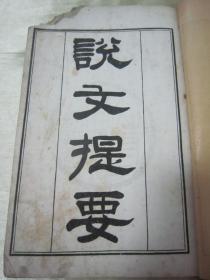 說文提要